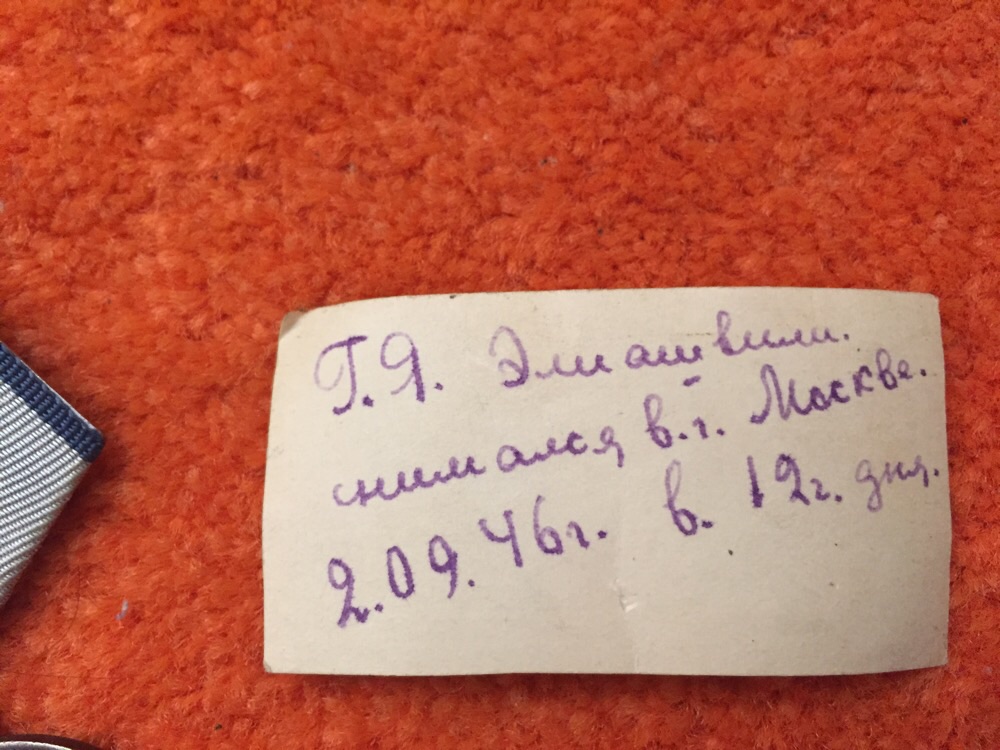 Г.Я. Элиашвили.
снимался в.г. Москве.
2.09.46г. в. 12г. дня.